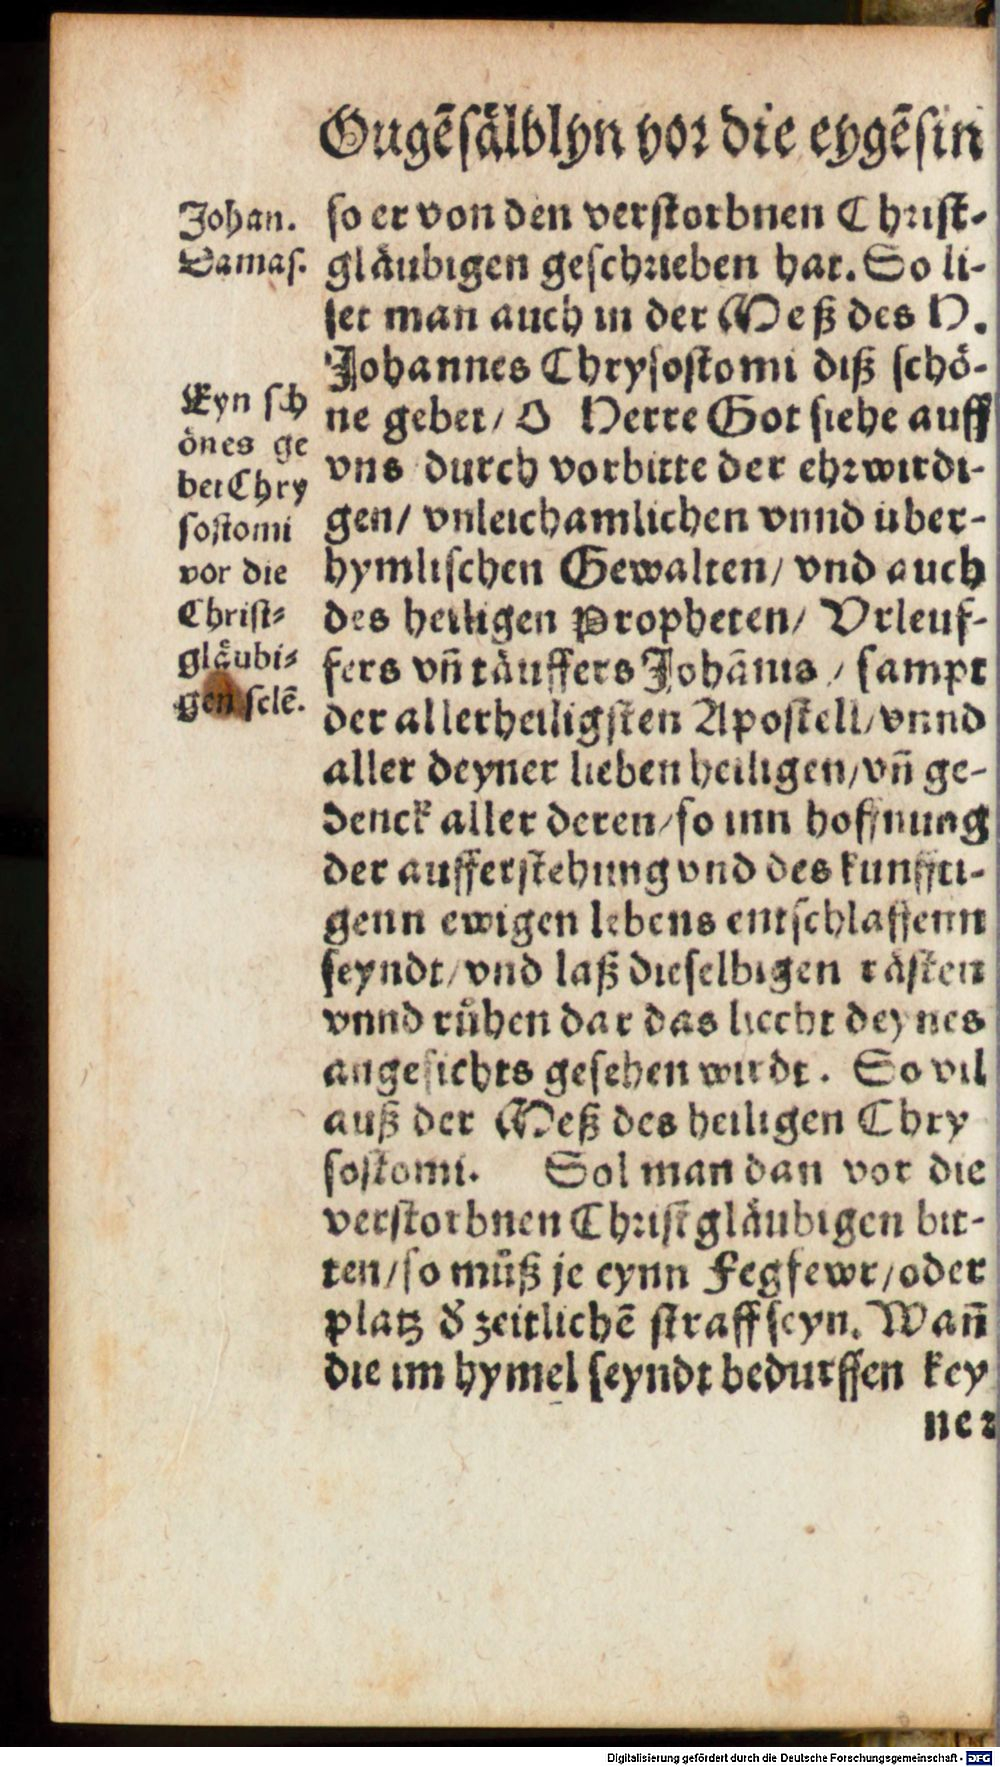 Gugẽsälblyn vor die eygẽsin
Johan.
Damas.
so er von den verstorbnen Christ-
gläubigen geschrieben hat. So li-
set man auch in der Meß des H.
Johannes Chrysostomi diß schö-
ne gebet/ O Herre Got siehe auff
vns durch vorbitte der ehrwirdi-
gen/ vnleichamlichen vnnd über-
hymlischen Gewalten/ vnd auch
des heiligen Propheten/ Vrleuf-
fers vñ täuffers Johãnis / sampt
der allerheiligsten Apostell/ vnnd
aller deyner lieben heiligen/ vñ ge-
denck aller deren/ so inn hoffnung
der aufferstehung vnd des kunffti-
genn ewigen lebens entschlaffenn
seyndt/ vnd laß dieselbigen rästen
vnnd růhen dar das liecht deynes
angesichts gesehen wirdt. So vil
auß der Meß des heiligen Chry
sostomi. Sol man dan vor die
verstorbnen Christgläubigen bit-
ten/ so můß je eynn Fegfewr/ oder
platz d̕ zeitlichẽ straff seyn. Wañ
die im hymel seyndt bedurffen key
ner
Eyn sch
önes ge
bet Chry
sostomi
vor die
Christ-
gläubi-
gen selẽ.
Digitalisierung gefördert durch die Deutsche Forschungsgemeinschaft - DFG